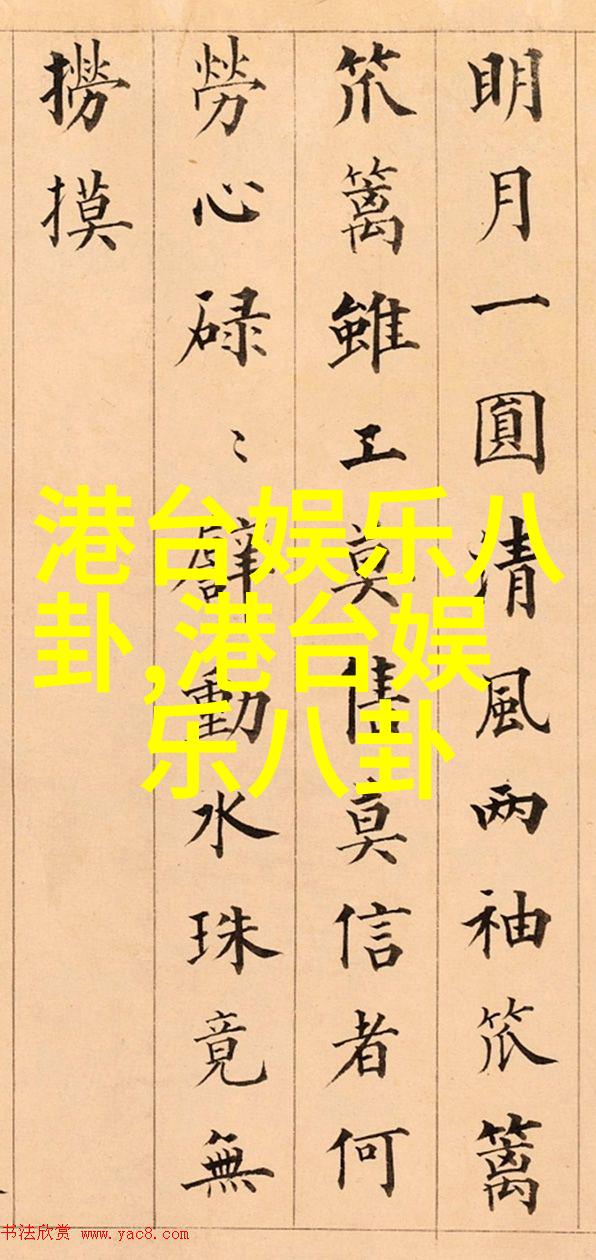 明月一圓清風两袖笊篱
笊篱雖工莫真信者何
勞心碌〻動水珠竟無
撈摸
港台娱乐八
卦,港台娱
乐八卦
书法欣赏 www.yac8.com